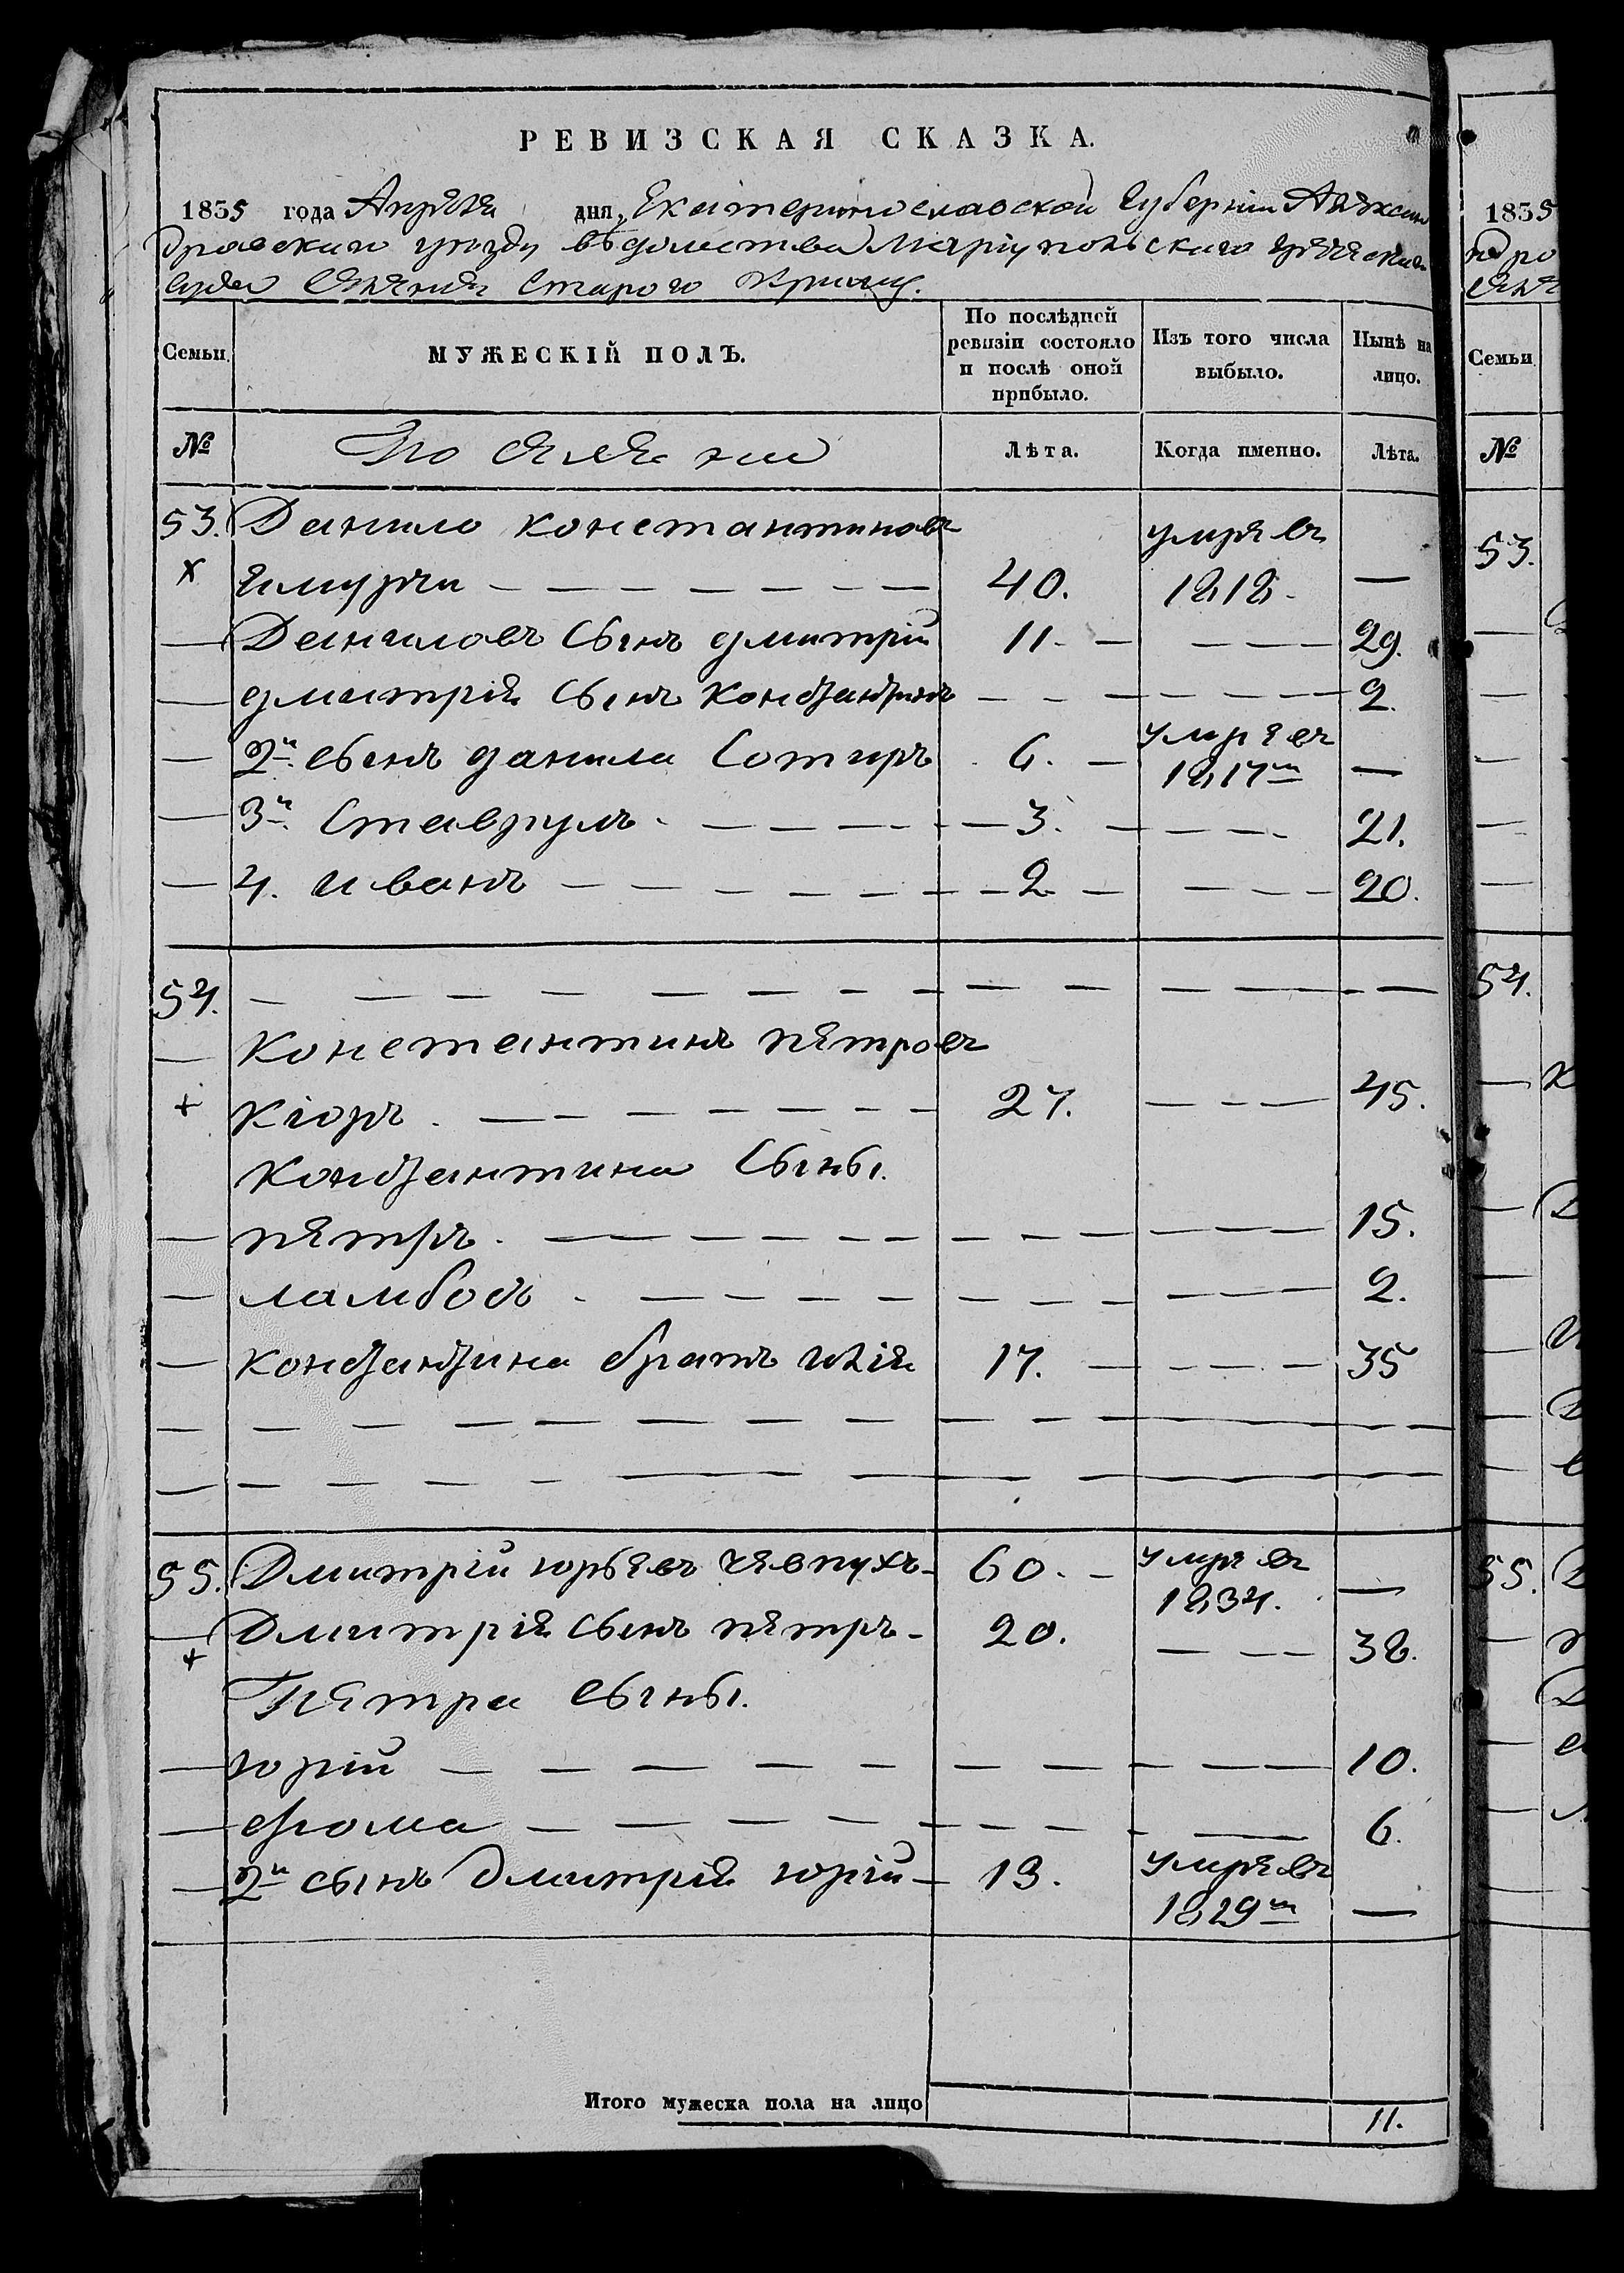 РЕВИЗСКАЯ СКАЗКА.
1835 года Апреля дня, Екатеринославской Губернии Алексан
дровского уезду ведомства Мариупольского греческаго
суда Селения Старого Крыму.
Семьи. МУЖЕСКІЙ ПОЛЪ. По послѣдней ревизіи состояло и послѣ оной прибыло. Изъ того числа выбыло. Нынѣ на лицо.
№ Лѣта. Когда именно. Лѣта.
53. Данило константиновъ умре въ
х 40. 1818. —
— Даниловъ Сынъ дмитрій 11. — — — 29.
— дмитрія Сынъ констандинъ — — — — — 2.
— 2й сынъ данила Сотиръ 6. — умре въ 1817м —
— 3й Ставрулъ — — — 3. — — — 21.
— 4. иванъ — — — 2 — — — 20.
54. — — — — — — — — — —
— Константинъ петровъ
+ кіоръ — — — 27. — — — 45.
Константина Сыны.
— петръ — — — — — — 15.
— ламбо — — — — — — 2.
— константина братъ илія 17. — — — 35
— — — — — — — — — —
— — — — — — — — — —
55. Дмитрій юрьевъ чевпухъ — 60. — умре въ 1834. —
— Дмитрія Сынъ петръ — 20. — — — 38.
+ Петра сыны.
— юрій — — — — — — 10.
— фома — — — — — — 6.
— 2й сынъ Дмитрія юрій — 13. умре въ 1829м —
Итого мужеска пола на лицо 11.
1835
Семьи
№
53.
54.
55.